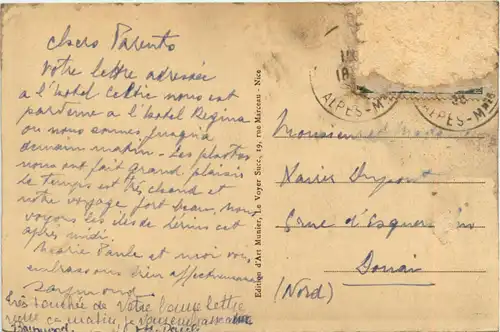 chers Parents
Votre lettre adressée
à l'hotel Celtic nous est
parvenue à l'hotel Regina
ou nous sommes jusqu'à
demain matin - Les photos
nous ont fait grand plaisir
le temps est très chaud et
notre voyage fort beau, nous
voyons les iles de Lérins cet
après midi.
Marie Paule et moi vous
embrassons bien affectueusement
Raymond
Très touchée de votre bonne lettre
reçue ce matin, je vous embrasse
Raymond
Edition d'Art Munier, Le Voyer Succ, 19, rue Marceau - Nice
18
ALPES-Mmes
ALPES-Mmes
Monsieur et Madame
Xavier Dupont
rue d'Esquerchin
Douai
(Nord)